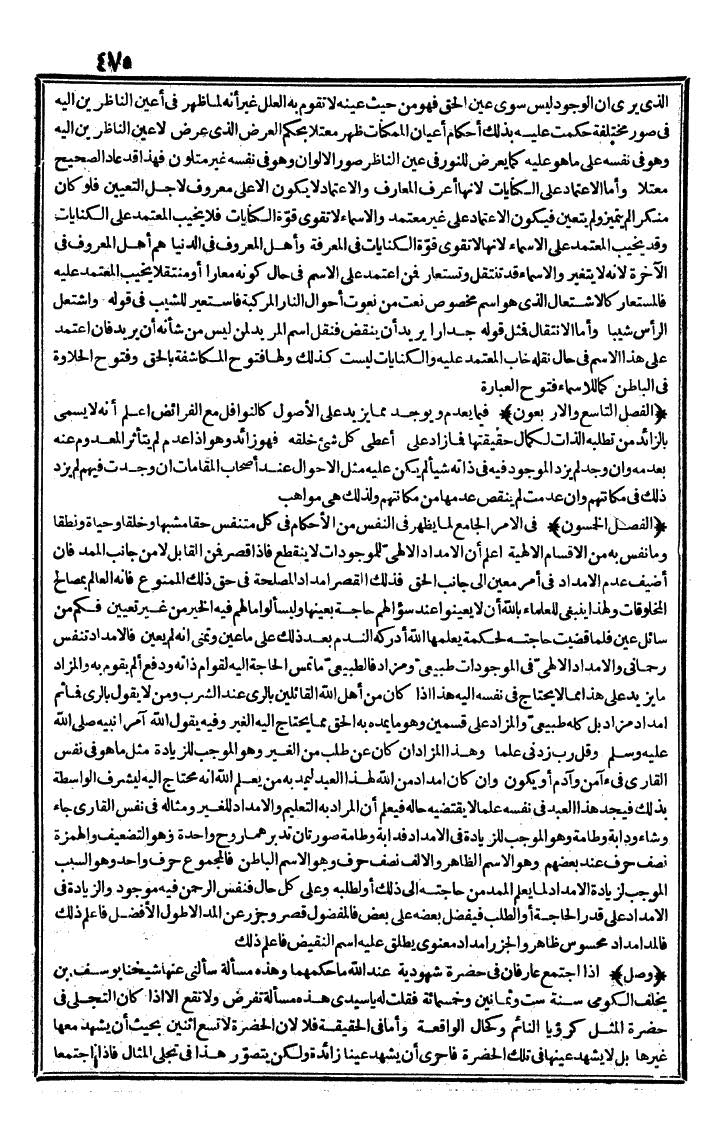 ٤٧٥
الذى يرى ان الوجود ليس سوى عين الحق فهو من حيث عينه لا تقوم به العلل غير أنه لما ظهر فى أعين الناظرين اليه
فى صور مختلفة حكمت عليه بذلك أحكام أعيان الممكنات ظهر معتلا بحكم العرض الذى عرض لاعين الناظرين اليه
وهو فى نفسه على ما هو عليه كما يعرض للنور فى عين الناظر صور الالوان وهو فى نفسه غير متلون فهذا قد عاد الصحيح
معتلا وأما الاعتماد على الكنايات لانها أعرف المعارف والاعتماد لا يكون الا على معروف لاجل التعيين فلو كان
منكرا لم يتميز ولم يتعين فيكون الاعتماد على غير معتمد والاسماء لا تقوى قوّة الكنايات فلا يخيب المعتمد على الكنايات
وقد يخيب المعتمد على الاسماء لانها لا تقوى قوّة الكنايات فى المعرفة وأهل المعروف فى الدنيا هم أهل المعروف فى
الآخرة لانه لا يتغير والاسماء قد تنتقل وتستعار فمن اعتمد على الاسم فى حال كونه معارا أو منتقلا يخيب المعتمد عليه
فالمستعار كالاشتعال الذى هو اسم مخصوص نعت من نعوت أحوال النار المركبة فاستعير للشيب فى قوله واشتعل
الرأس شيبا وأما الانتقال فمثل قوله جدارا يريد أن ينقض فنقل اسم المريد لمن ليس من شأنه أن يريد فان اعتمد
على هذا الاسم فى حال نقله خاب المعتمد عليه والكنايات ليست كذلك ولها فتوح المكاشفة بالحق وفتوح الحلاوة
فى الباطن كما للاسماء فتوح العبارة
﴿الفصل التاسع والاربعون﴾ فيما يعدم ويوجد مما يزيد على الأصول كالنوافل مع الفرائض اعلم أنه لا يسمى
بالزائد من تطلبه الذات لكمال حقيقتها فما زاد على أعطى كل شئ خلقه فهو زائد وهو اذا عدم لم يتأثر المعدوم عنه
بعدمه وان وجد لم يزد الموجود فيه فى ذاته شيأ لم يكن عليه مثل الاحوال عند أصحاب المقامات ان وجدت فيهم لم يزد
ذلك فى مكانتهم وان عدمت لم ينقص عدمها من مكانتهم ولذلك هى مواهب
﴿الفصل الخمسون﴾ فى الامر الجامع لما يظهر فى النفس من الأحكام فى كل متنفس حقا مشبها وخلقا وحياة ونطقا
وما تنفس به من الاقسام الالهية اعلم أن الامداد الالهىّ للموجودات لا ينقطع فاذا قصر فمن القابل لا من جانب الممد فان
أضيف عدم الامداد فى أمر معين الى جانب الحق فذلك القصر امداد المصلحة فى حق ذلك الممنوع فانه العالم بمصالح
المخلوقات ولهذا ينبغى للعلماء بالله أن لا يعينوا عند سؤالهم حاجة بعينها وليسألوا ما لهم فيه الخير من غير تعيين فكم من
سائل عين فلما قضيت حاجته لحكمة يعلمها الله أدركه الندم بعد ذلك على ما عين وتمنى انه لم يعين فالامداد تنفس
رحمانى والامداد الالهىّ فى الموجودات طبيعىّ ومزاد فالطبيعىّ ما تمس الحاجة اليه لقوام ذاته ودفع ألم يقوم به والمزاد
ما يزيد على هذا مما لا يحتاج فى نفسه اليه هذا اذا كان من أهل الله القائلين بالرى عند الشرب ومن لا يقول بالرى فما ثم
امداد مزاد بل كله طبيعىّ والمزاد على قسمين وهو ما يمده به الحق مما يحتاج اليه الغير وفيه يقول الله آمرا نبيه صلى الله
عليه وسلم وقل رب زدنى علما وهذا المزاد ان كان عن طلب من الغير وهو الموجب للزيادة مثل ما هو فى نفس
القارى فى آمن وآدم أو يكون وان كان امداد من الله لهذا العبد ليمد به من يعلم الله انه محتاج اليه ليشرف الواسطة
بذلك فيجد هذا العبد فى نفسه علما لا يقتضيه حاله فيعلم أن المراد به التعليم والامداد للغير ومثاله فى نفس القارى جاء
وشاء ودابة وطامة وهو الموجب للزيادة فى الامداد فدابة وطامة صورتان تدبرهما روح واحدة وهو التضعيف والهمزة
نصف حرف عند بعضهم وهو الاسم الظاهر والالف نصف حرف وهو الاسم الباطن فالمجموع حرف واحد وهو السبب
الموجب لزيادة الامداد لما يعلم الممد من حاجته الى ذلك أو لطلبه وعلى كل حال فنفس الرحمن فيه موجود والزيادة فى
الامداد على قدر الحاجة أو الطلب فيفضل بعضه على بعض فالمفضول قصر وجزر عن المد الاطول الأفضل فاعلم ذلك
فالمد امداد محسوس ظاهر والجزر امداد معنوى يطلق عليه اسم النقيض فاعلم ذلك
﴿وصل﴾ اذا اجتمع عارفان فى حضرة شهودية عند الله ما حكمهما وهذه مسألة سألنى عنها شيخنا يوسف بن
يخلف الكومى سنة ست وثمانين وخمسمائة فقلت له يا سيدى هذه مسألة تفرض ولا تقع الا اذا كان التجلى فى
حضرة المثل كرؤيا النائم وكحال الواقعة وأما فى الحقيقة فلا لان الحضرة لا تسع اثنين بحيث أن يشهد معها
غيرها بل لا يشهد عينها فى تلك الحضرة فاحرى أن يشهد عينا زائدة ولكن يتصوّر هذا فى تجلى المثال فاذا اجتمعا